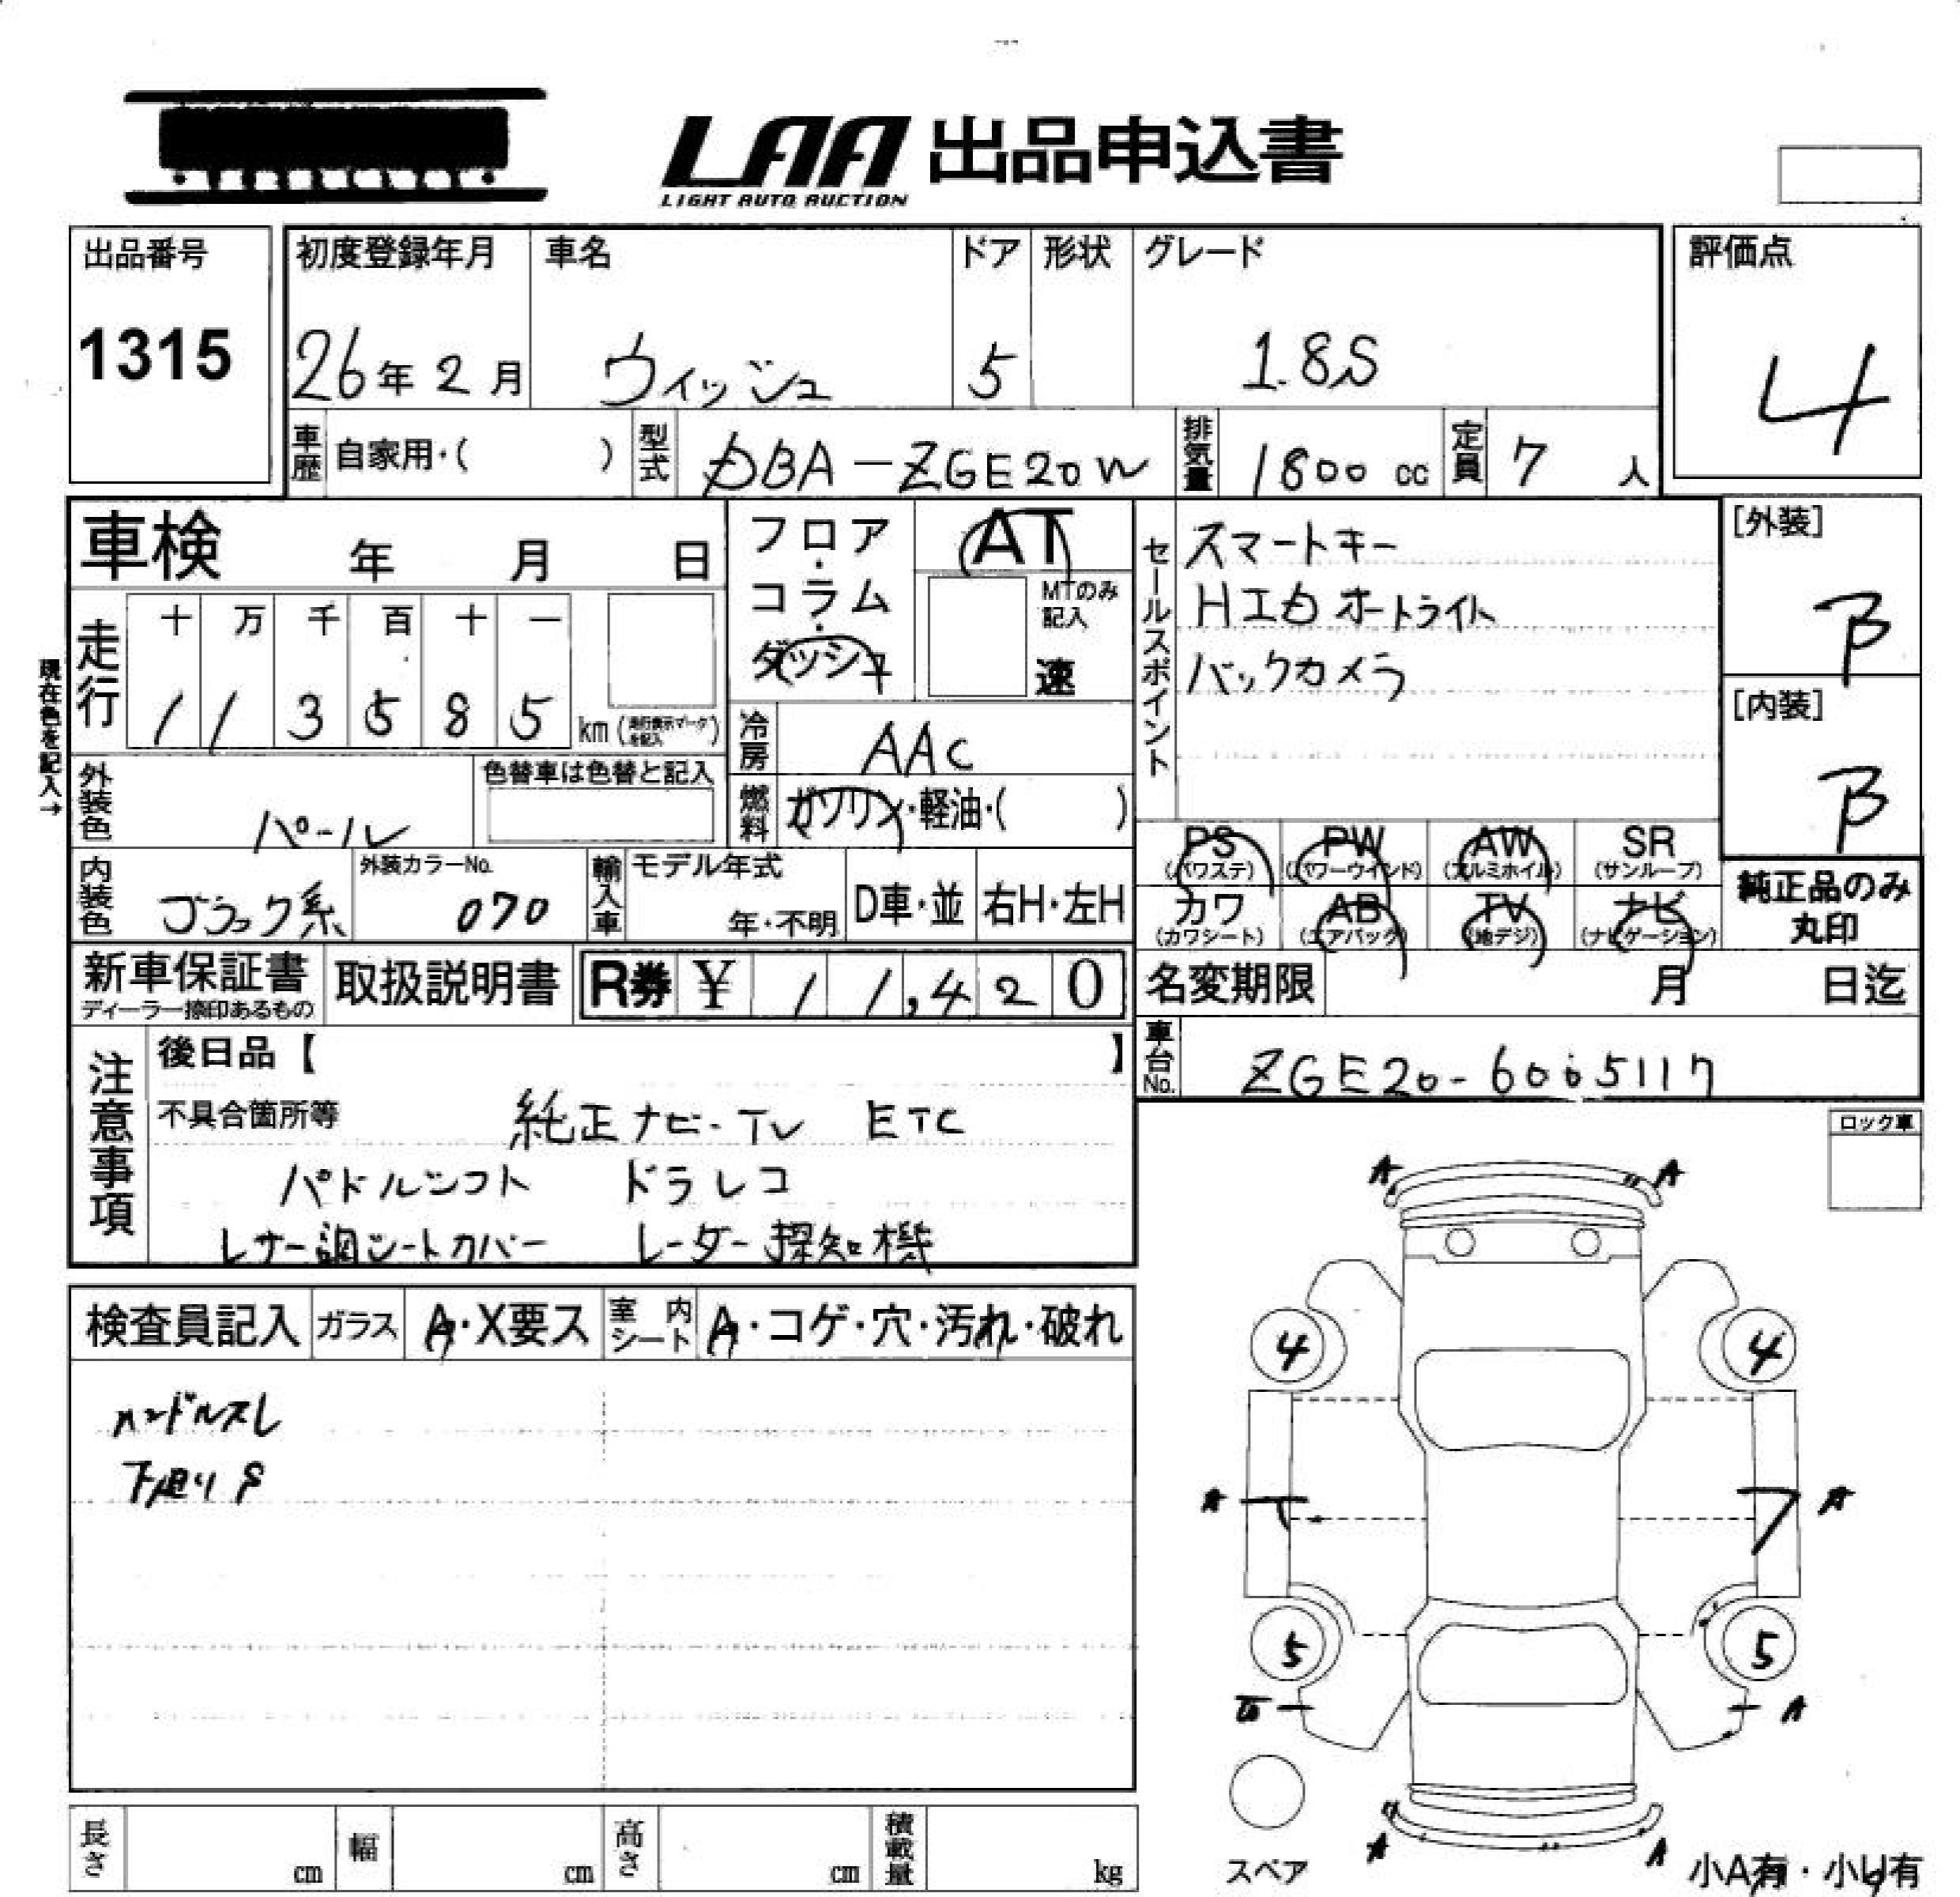 LAA 出品申込書
LIGHT AUTO AUCTION
出品番号
1315
初度登録年月 車名 ドア 形状 グレード
26年 2月 ウィッシュ 5 1.8S
評価点
4
車歴 自家用・( ) 型式 DBA-ZGE20W 排気量 1800 cc 定員 7 人
車検 年 月 日
フロア・コラム・ダッシュ
AT
MTのみ記入
速
走行 十 万 千 百 十 一
1 1 3 5 8 5 km (走行表示マークを記入)
現在色を記入→
冷房 AAC
燃料 ガソリン・軽油・( )
外装色 パール
色替車は色替と記入
内装色 ブラック系
外装カラーNo. 070
輸入車 モデル年式 年・不明 D車・並 右H・左H
新車保証書 ディーラー捺印あるもの
取扱説明書
R券 ¥ 11,420
セールスポイント
スマートキー
HID オートライト
バックカメラ
[外装]
B
[内装]
B
PS (パワステ) PW (パワーウインド) AW (アルミホイル) SR (サンルーフ)
カワ (カワシート) AB (エアバック) TV (地デジ) ナビ (ナビゲーション)
純正品のみ丸印
名変期限 月 日迄
車台No. ZGE20-6005117
注意事項
後日品【 】
不具合箇所等 純正ナビ・TV ETC
パドルシフト ドラレコ
レザー調シートカバー レーダー探知機
ロック車
検査員記入 ガラス A・X要ス 室内シート A・コゲ・穴・汚れ・破れ
ハンドルスレ
下廻りS
A A
4 4
A A
5 5
A
A A
スペア
小A有・小U有
長さ cm 幅 cm 高さ cm 積載量 kg